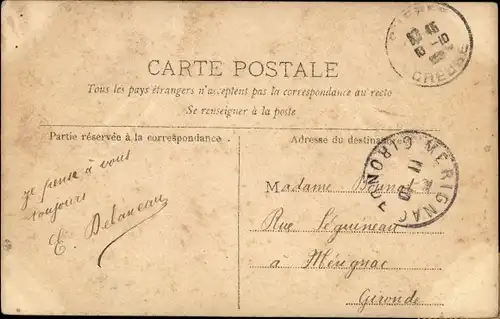 CREUSE
CARTE POSTALE
Tous les pays étrangers n'acceptent pas la correspondance au recto
Se renseigner à la poste
Partie réservée à la correspondance.
Adresse du destinataire
MÉRIGNAC
GIRONDE
11-10
je pense à vous
toujours
E. Delaneau
Madame
Rue Séguineau
à Mérignac
Gironde